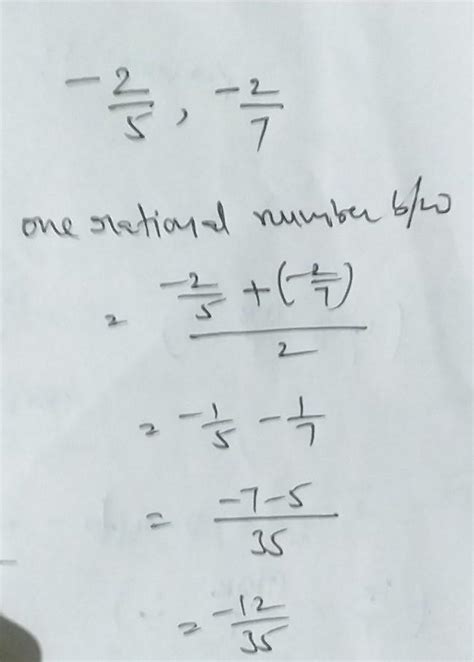 -2/5 , -2/7
one rational number b/w
= (-2/5 + (-2/7))/2
= -1/5 - 1/7
= (-7-5)/35
= -12/35